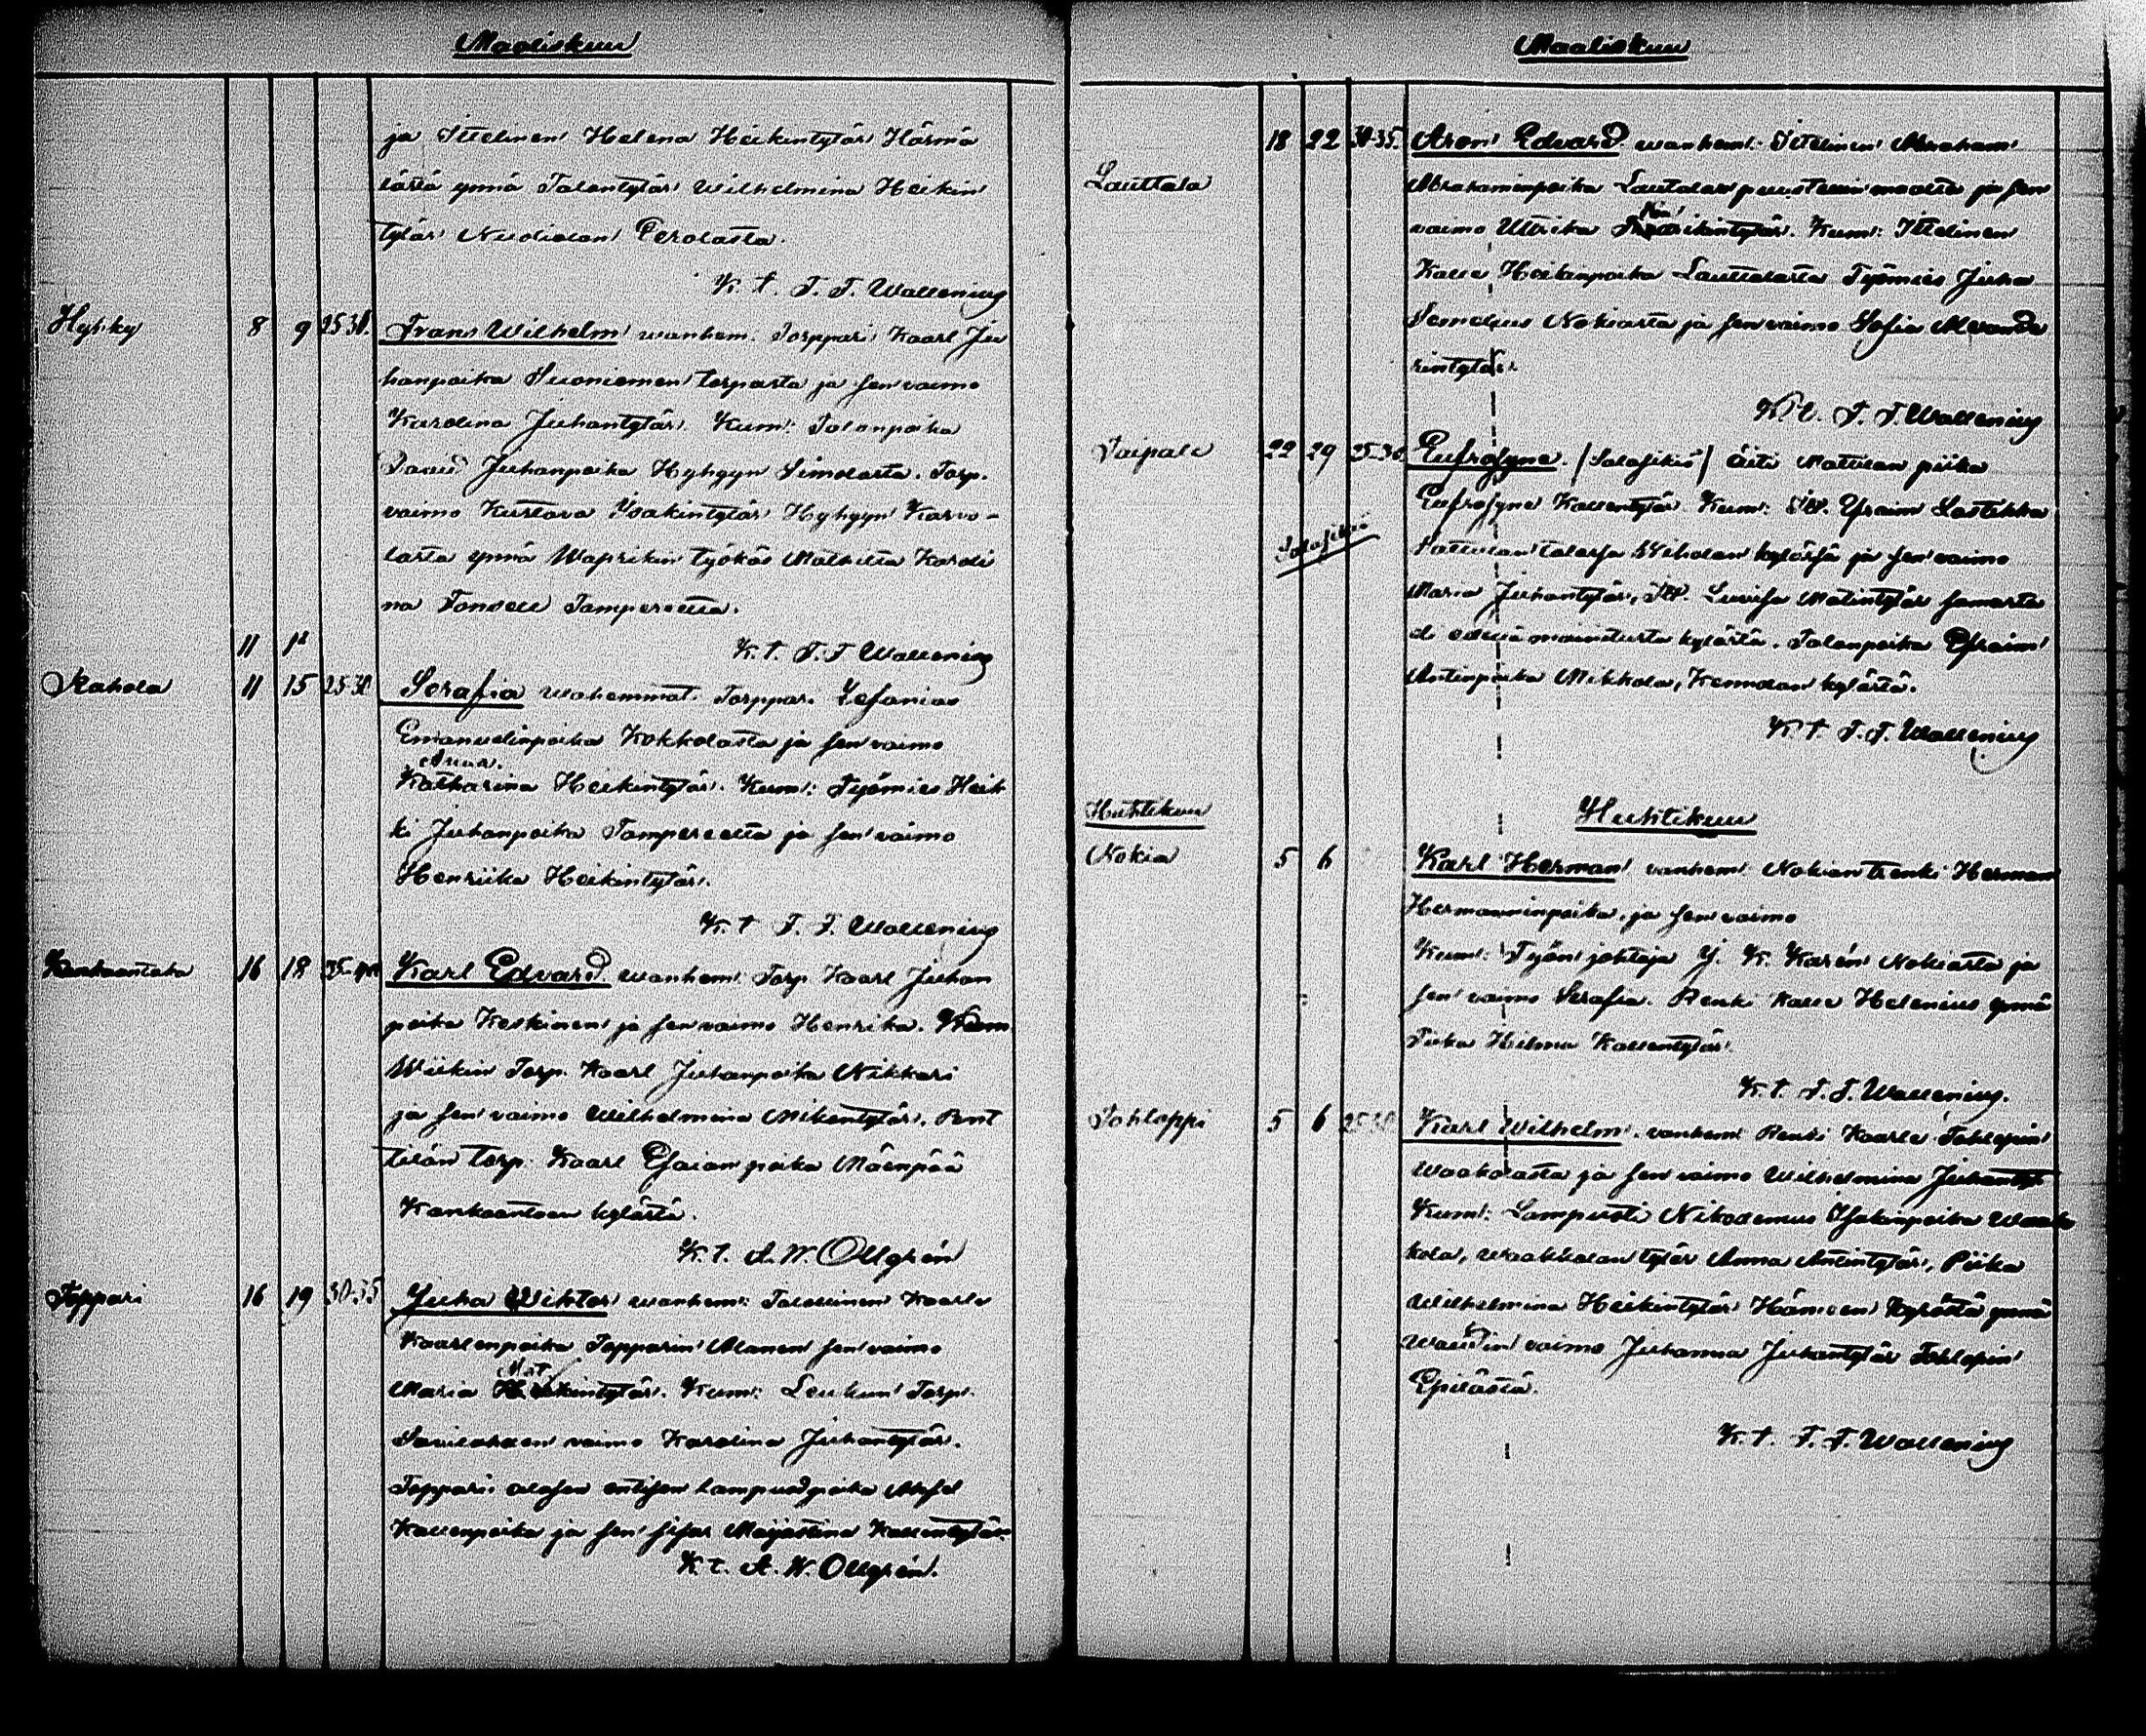 Maaliskuu
ja Ittelinen Helena Heikintytär Härmä
lästä ynnä Talontytär Wilhelmina Heikin
tytär Nudiolan Perolasta.
K. t. F. F. Wallenius
Hyhky 8 9 25-30. Frans Wilhelm wanhem. Torppari Kaarl Ju
hanpoika Suoniemen torpasta ja sen vaimo
Karolina Juhantytär. Kum: Talonpoika
David Juhanpoika Hyhgyn Simolasta. Torp.
vaimo Kustava Isakintytär Hyhgyn Karvo-
lasta ynnä Waprikin työkäs Mathilta Karoli
na Fonsell Tampereelta.
K. t. F. F. Wallenius
11 12
Rahola 11 15 25-30 Serafia wahemmat. Torppari Zefanias
Emanuelinpoika Kokkolasta ja sen vaimo
Anna.
Katharina Heikintytär. Kum: Työmies Heik
ki Juhanpoika Tampereelta ja sen vaimo
Henriika Heikintytär.
K. t. F. F. Wallenius
Kankaantaka 16 18 35-40 Karl Edvard. wanhem. Torp. Kaarl Juhan
poika Keskinen ja sen vaimo Henrika. Kum
Wiikin Torp. Kaarl Juhanpoika Nikkari
ja sen vaimo Wilhelmina Mikentytär. Pent
tilän torp. Kaarl Esaianpoika Mäenpää
Kankaantaan kylästä.
K. t. A. W. Ollgrén
Toppari 16 19 30-35 Juha Wihtor wanhem: Talollinen Kaarle
Kaarlenpoika Topparin Alanen sen vaimo
Mat
Maria Heikintytär. Kum: Leukun Torp.
Savilahden vaimo Karolina Juhantytär.
Toppari alasen entisen lampuodpoika Aksel
Kallenpoika ja sen sisar Maijastina Kallentytär.
K. t. A. W. Ollgrén.
Maaliskuu
18 22 30-35. Aron Edvard. wanhem: Ittelinen Abraham
Lauttala
Abrahaminpoika Lautalan puustellin maalta ja sen
vaimo Ulrika Heikintytär. Kum: Ittelinen
Kalle Heikinpoika Lauttalasta Työmies Juha
Semelius Nokiasta ja sen vaimo Sofia Alexande
rintytär.
K. t. F. F. Wallenius
Taipale 22 29 25-30 Eufrosyne. /Salasikiö/ äiti Mattilan piika
Eufrosyne Kallentytär. Kum: Itt. Efraim Lastikka
Salasikiö
talossa kylässä ja sen vaimo
Maria Juhantytär, Itt. Luvisa Matintytär samasta
eli edellämainitusta kylästä. Talonpoika Efraim
Antinpoika Mikkola, Kennolan kylästä.
K. t. F. F. Wallenius
Huhtikuu
Huhtikuu
Nokia 5 6 Karl Herman vanhem: Nokian renki Herman
Hermanninpoika. ja sen vaimo
Kum: Työn johtaja J. K. Karén Nokiasta ja
sen vaimo Serafia. Renki Kalle Helenius ynnä
Piika Hilma Kallentytär.
K. t. F. F. Wallenius.
Tohloppi 5 6 25-30 Karl Wilhelm. vanhem: Renki Kaarle Tohlopin
Waakolasta ja sen vaimo Wilhelmina Juhantyt
Kum: Lampuoti Nikodemus Isakinpoika Waak
kola, Waakkolan tytär Anna Antintytär, Piika
Wilhelmina Heikintytär Hämeen kyröstä ynnä
vaimo Juhanna Juhantytär Tohlopin
Epilästä.
K. t. F. F. Wallenius